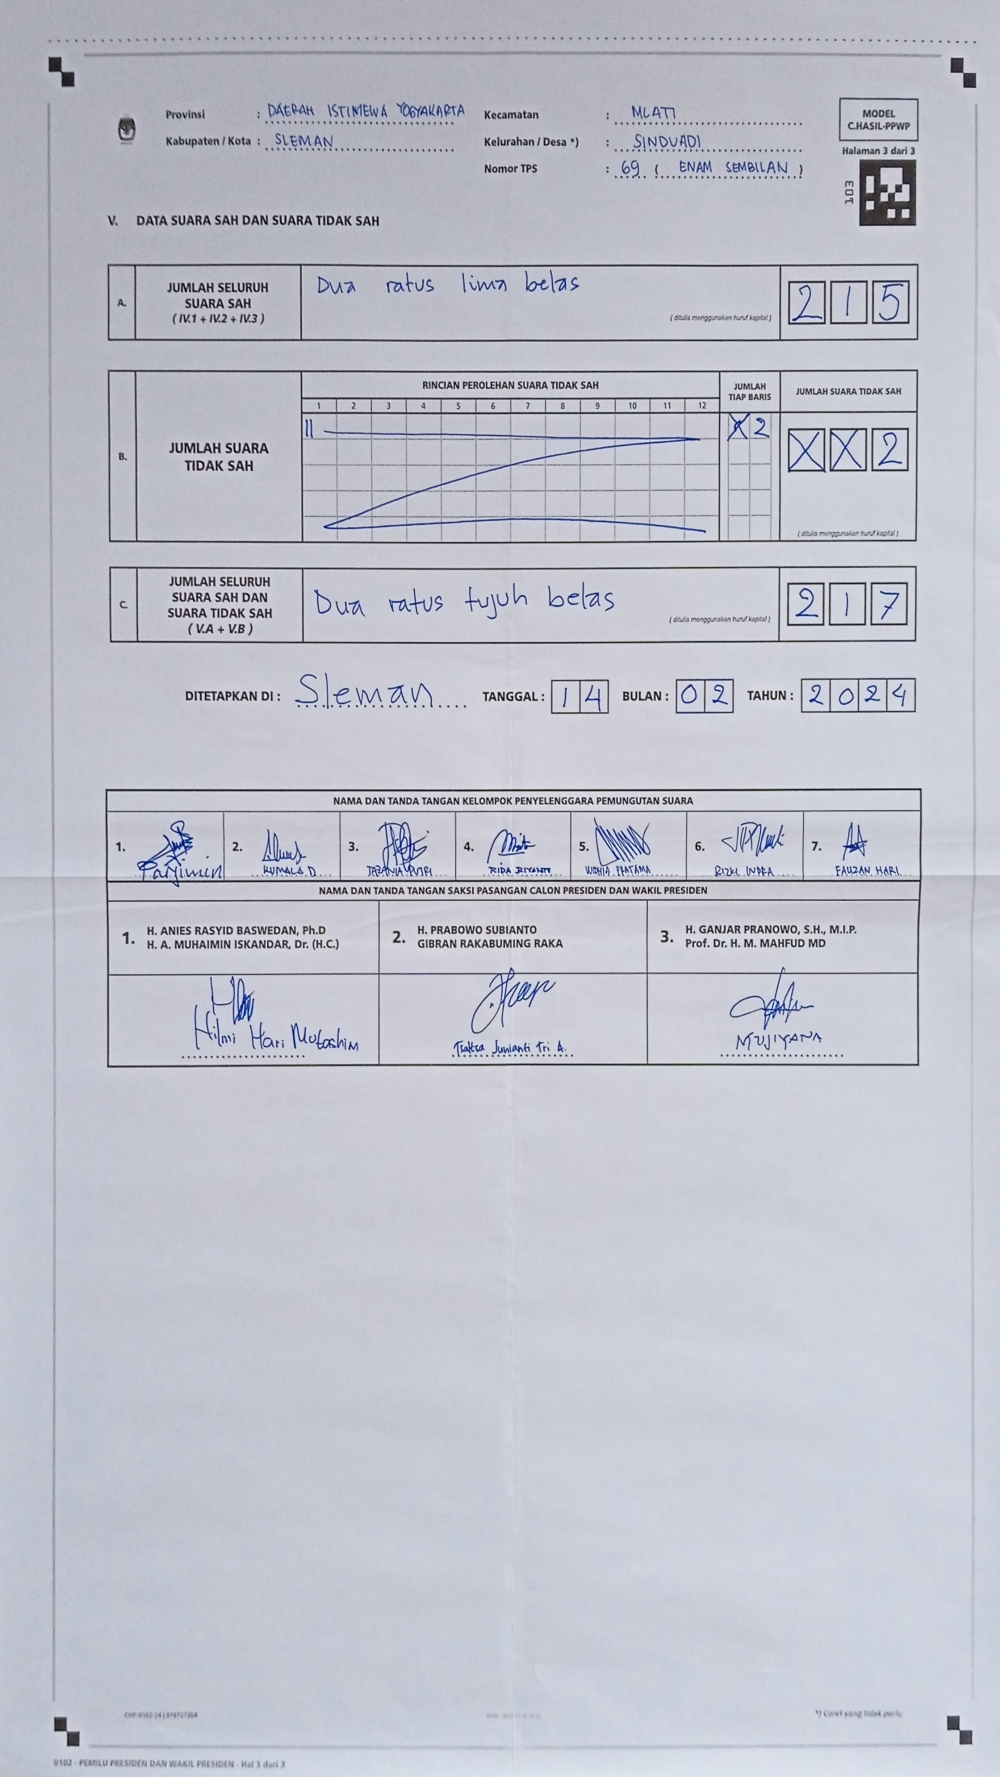 Provinsi : DAERAH ISTIMEWA YOGYAKARTA
Kabupaten / Kota : SLEMAN
Kecamatan : MLATI
Kelurahan / Desa *) : SINDUADI
Nomor TPS : 69 ( ENAM SEMBILAN )
MODEL
C.HASIL-PPWP
Halaman 3 dari 3
103
V. DATA SUARA SAH DAN SUARA TIDAK SAH
A.
JUMLAH SELURUH
SUARA SAH
( IV.1 + IV.2 + IV.3 )
Dua ratus lima belas
( ditulis menggunakan huruf kapital )
2 1 5
B.
JUMLAH SUARA
TIDAK SAH
RINCIAN PEROLEHAN SUARA TIDAK SAH
1 2 3 4 5 6 7 8 9 10 11 12
JUMLAH
TIAP BARIS
X 2
JUMLAH SUARA TIDAK SAH
X X 2
( ditulis menggunakan huruf kapital )
C.
JUMLAH SELURUH
SUARA SAH DAN
SUARA TIDAK SAH
( V.A + V.B )
Dua ratus tujuh belas
( ditulis menggunakan huruf kapital )
2 1 7
DITETAPKAN DI : Sleman TANGGAL : 14 BULAN : 02 TAHUN : 2024
NAMA DAN TANDA TANGAN KELOMPOK PENYELENGGARA PEMUNGUTAN SUARA
1. 2. 3. 4. 5. 6. 7.
Parjimin KUMALA D. RIDA RIYANTI PRATAMA RIZKI INDRA FAUZAN HARI
NAMA DAN TANDA TANGAN SAKSI PASANGAN CALON PRESIDEN DAN WAKIL PRESIDEN
1. H. ANIES RASYID BASWEDAN, Ph.D
H. A. MUHAIMIN ISKANDAR, Dr. (H.C.)
2. H. PRABOWO SUBIANTO
GIBRAN RAKABUMING RAKA
3. H. GANJAR PRANOWO, S.H., M.I.P.
Prof. Dr. H. M. MAHFUD MD
Hilmi Hari
Junianti Tri A.
MUJIYANA
*) Coret yang tidak perlu
0102 - PEMILU PRESIDEN DAN WAKIL PRESIDEN - Hal 3 dari 3